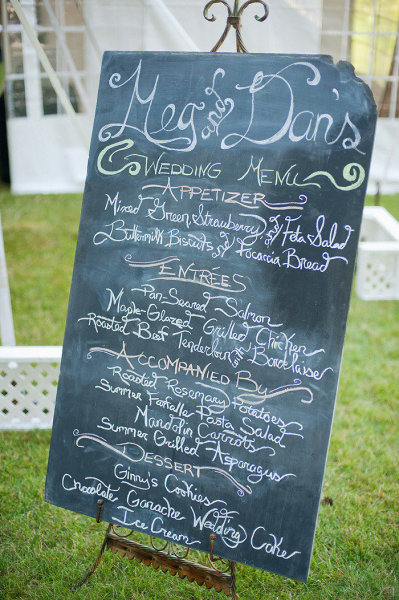 Meg and Dan's
Wedding Menu
Appetizer
Mixed Green, Strawberry & Feta Salad
Buttermilk Biscuits & Focarcia Bread
Entrées
Pan-Seared Salmon
Maple-Glazed Grilled Chicken
Roasted Beef Tenderloin & Bordelaisse
Accompanied By
Roasted Rosemary Potatoes
Summer Farfalla Pasta Salad
Mandolin Carrots
Summer Grilled Asparagus
Dessert
Ginny's Cookies
Chocolate Ganache Wedding Cake
Ice Cream